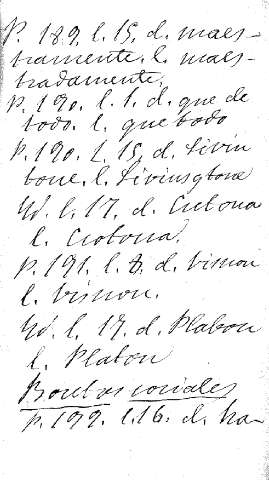 P. 189, l. 15, d. maes-
tramente. l. maes-
tradamente.
P. 190. l. 1. d. que de
todo. l. que todo
P. 190. l. 15, d. Livin
tone. l. Livinsgtone
Yd. l. 17. d. Cutona
l. Crotona.
P. 191. l. 8. d. visnon
l. visnon.
Yd. l. 17. d. Plabon
l. Platon
sociales
P. 199. l. 16. d. ha-